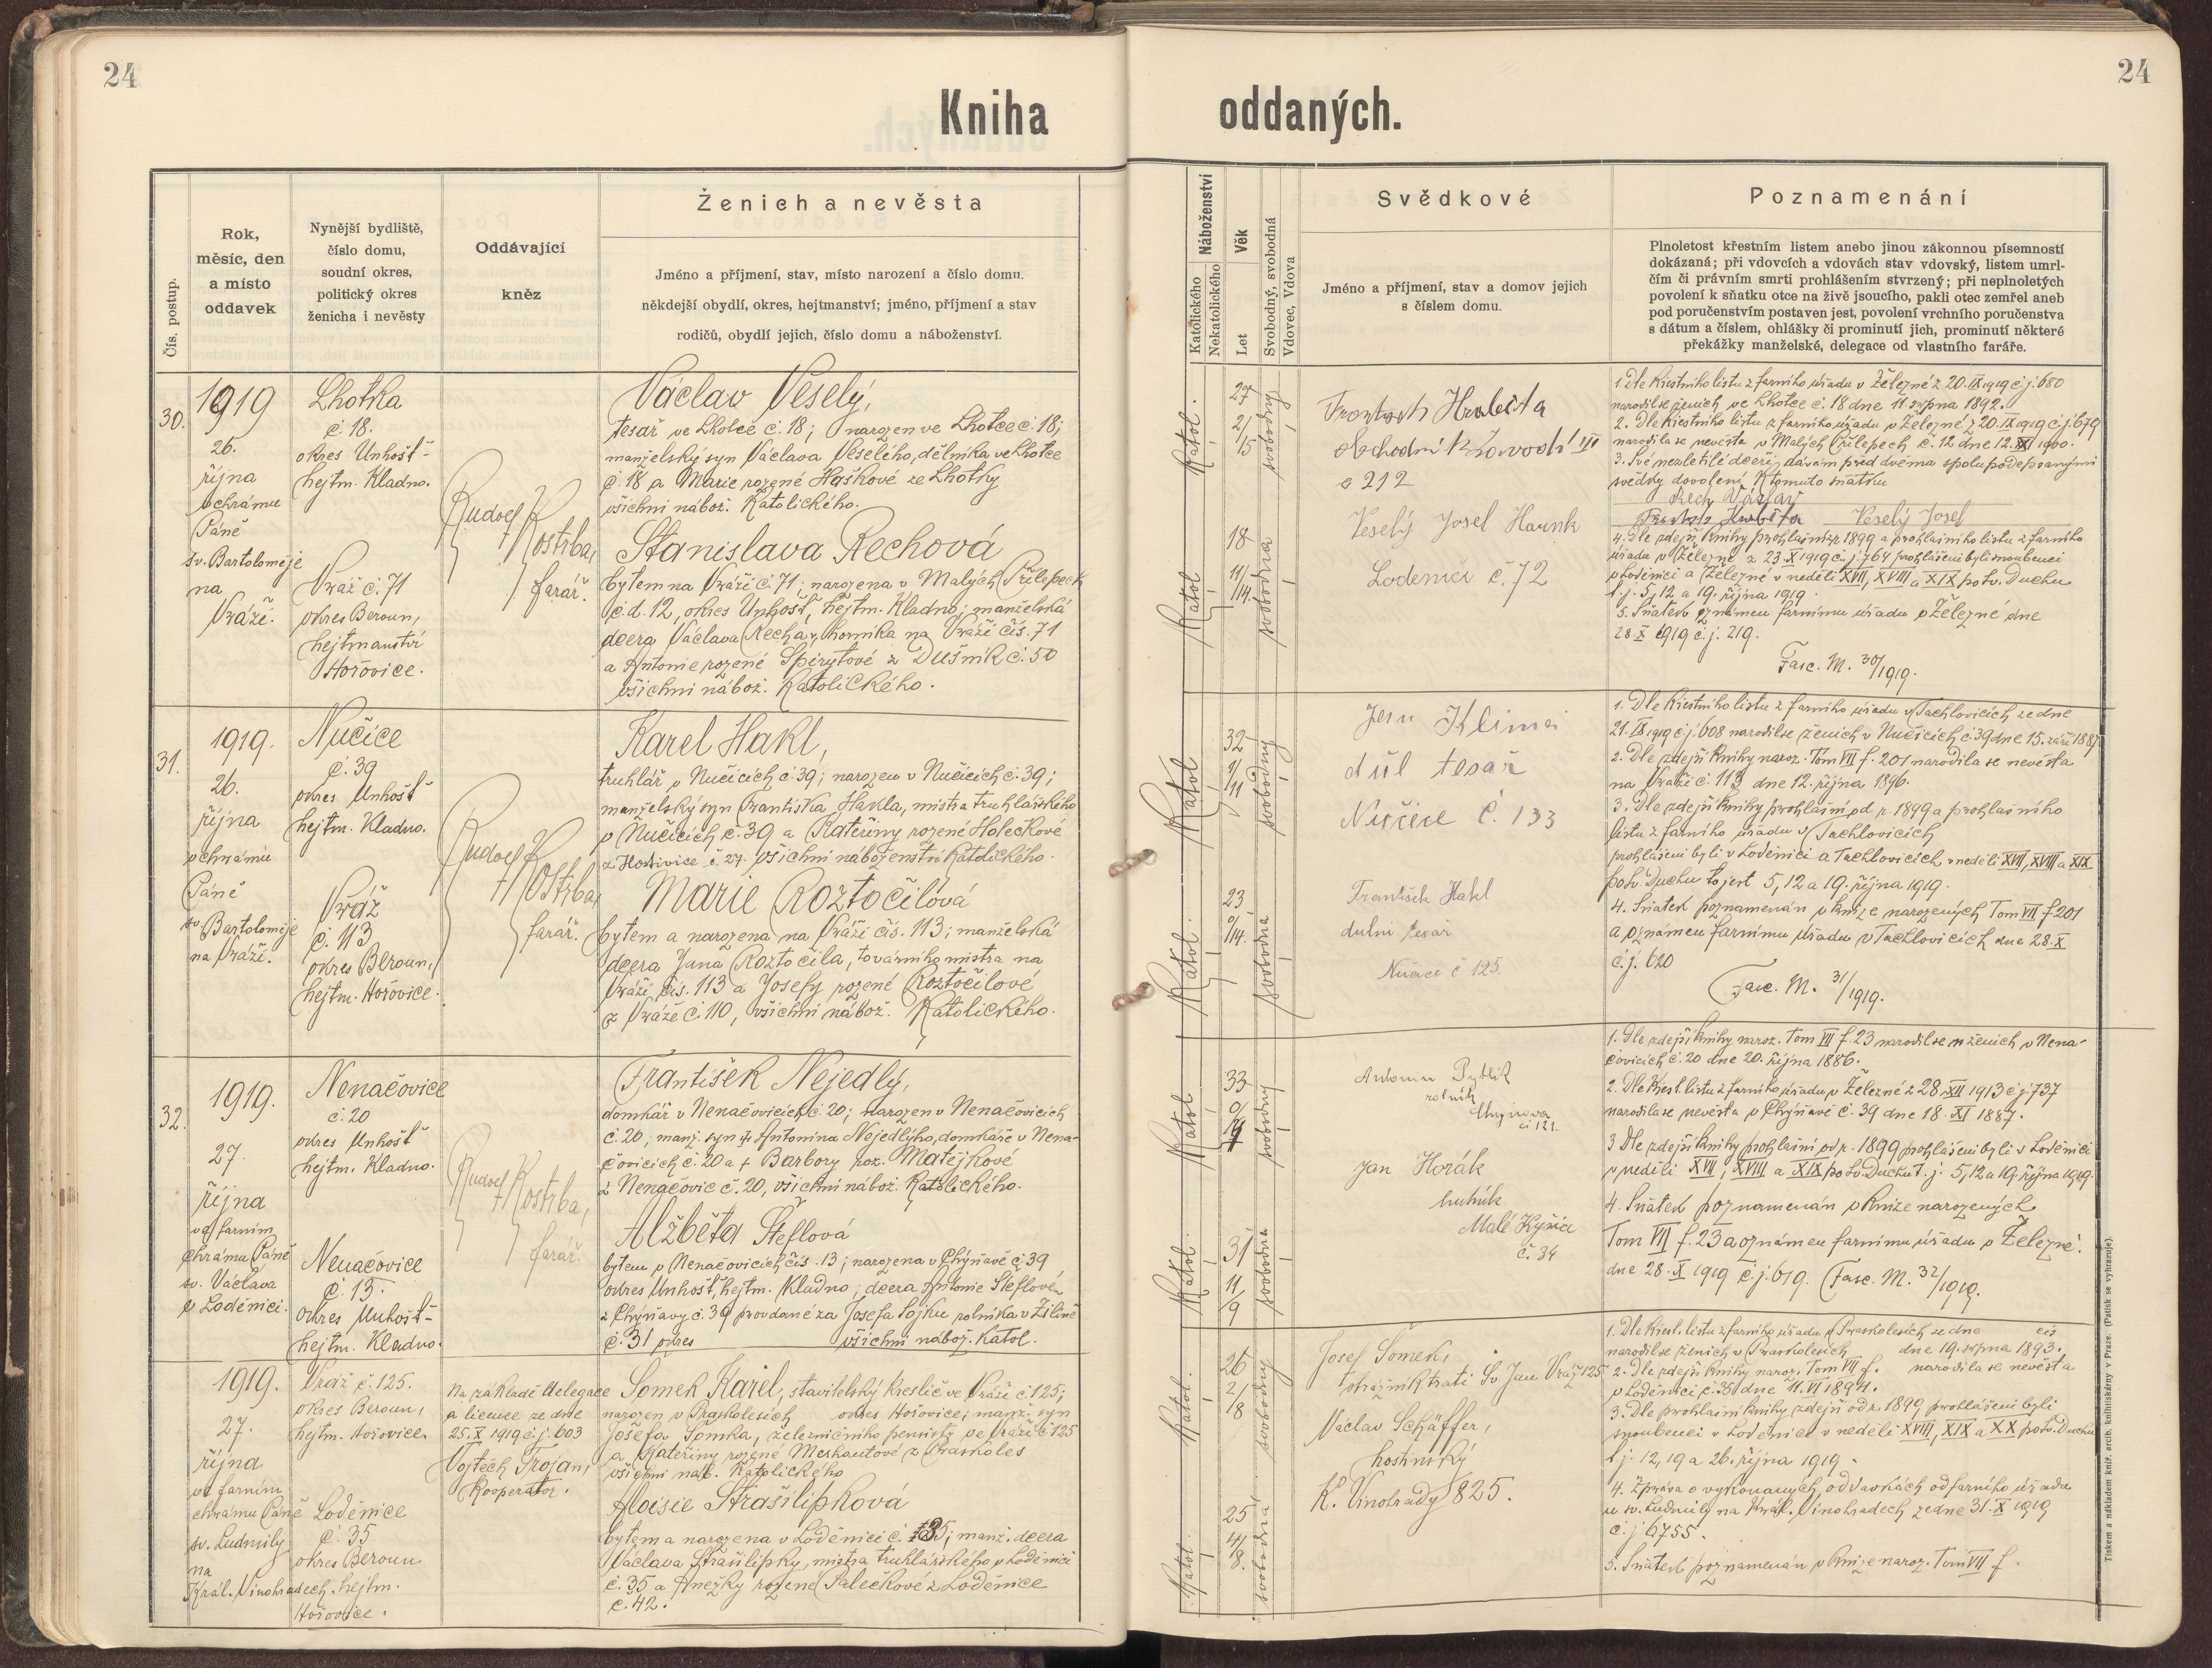 24
24
Kniha
oddaných.
Čís. postup.
Rok,
měsíc, den
a místo
oddavek
Nynější bydliště,
číslo domu,
soudní okres,
politický okres
ženicha i nevěsty
Oddávající
kněz
Ženich a nevěsta
Jméno a příjmení, stav, místo narození a číslo domu.
někdejší obydlí, okres, hejtmanství; jméno, příjmení a stav
rodičů, obydlí jejich, číslo domu a náboženství.
Náboženství
Katolického
Nekatolického
Věk
Let
Svobodný, svobodná
Vdovec, Vdova
Svědkové
Jméno a příjmení, stav a domov jejich
s číslem domu.
Poznamenání
Plnoletost křestním listem anebo jinou zákonnou písemností
dokázaná; při vdovcích a vdovách stav vdovský, listem umrl-
čím či právním smrti prohlášením stvrzený; při neplnoletých
povolení k sňatku otce na živě jsoucího, pakli otec zemřel aneb
pod poručenstvím postaven jest, povolení vrchního poručenstva
s dátum a číslem, ohlášky či prominutí jich, prominutí některé
překážky manželské, delegace od vlastního faráře.
30.
1919
26.
října
v chrámu
Páně
sv. Bartoloměje
na
Vráži.
Lhotka
č. 18.
okres Unhošť-
hejtm. Kladno.
Vráž č. 71
okres Beroun,
hejtmanství
Hořovice.
Rudolf
Kostrba,
farář.
Václav Veselý,
tesař ve Lhotce č. 18; narozen ve Lhotce č. 18;
manželský syn Václava Veselého, dělníka ve Lhotce
č. 18 a Marie rozené Haškové ze Lhotky
všichni nábož. Katolického.
Stanislava Rechová
bytem na Vráži č. 71; narozena v Malých Přílepech
č.d. 12, okres Unhošť, hejtm. Kladno; manželská
dcera Václava Recha, horníka na Vráži čís. 71
a Antonie rozené Spirytové z Dušník č. 50
všichni nábož. Katolického.
Katol.
27
2/15
svobodný
Katol
18
11/14.
svobodna
č 212
Veselý Josef
Loděnici č. 72
1. Dle křestního listu z farního úřadu v Železné z 20. IX 1919 č.j. 680
narodil se ženich ve Lhotce č. 18 dne 11 srpna 1892.
2. Dle křestního listu z farního úřadu v Železné z 20. IX 1919 č.j. 679
narodila se nevěsta v Malých Přílepech č. 12. dne 12. XI 1900.
3. Své nezletilé dceři dávám před dvěma spolupodepsanými
svědky dovolení k tomuto sňatku
Rech Václav
Veselý Josef
4. Dle zdejší knihy prohlášní z r. 1899 a prohlašního listu z farního
úřadu v Železné z 23. X 1919 č.j. 764 prohlášeni byli snoubenci
v Loděnici a Železné v neděli XVII, XVIII a XIX po sv. Duchu
t.j. 5, 12 a 19. října 1919.
5. Sňatek oznámen farnímu úřadu v Železné dne
28. X 1919 č.j. 219.
Fasc. M. 30/1919.
31.
1919.
26.
října
v chrámu
Páně
sv Bartoloměje
na Vráži.
Nučice
č. 39
okres Unhošť
hejtm. Kladno.
Vráž
č. 113
okres Beroun,
hejtm. Hořovice.
Rudolf
Kostrba,
farář.
Karel Hakl,
truhlář v Nučicích č. 39; narozen v Nučicích č. 39;
manželský syn Františka Hakla, mistra truhlářského
v Nučicích č. 39 a Kateřiny rozené Holečkové
z Hostivice č. 27. všichni náboženství Katolického.
Marie Roztočilová
bytem a narozena na Vráži čís. 113; manželská
dcera Jana Roztočila, továrního mistra na
Vráži, čís. 113 a Josefy rozené Roztočilové
z Vráže č. 110, všichni nábož. Katolického.
Katol
32
1/11
svobodný
Katol.
23
0/14.
svobodna
důl tesař
Nučice č. 133
František Hakl
dulní tesař
Nučice č 125.
1. Dle křestního listu z farního úřadu v Tachlovicích ze dne
21. IX 1919 č.j. 608 narodil se ženich v Nučicích č. 39 dne 15. září 1887
2. Dle zdejší knihy naroz. Tom VII f. 201 narodila se nevěsta
na Vráži č. 113 dne 12. října 1896.
3. Dle zdejší knihy prohlašní od r. 1899 a prohlašního
listu z farního úřadu v Tachlovicích
prohlášeni byli v Loděnici a Tachlovicích v neděli XVII, XVIII a XIX
po sv. Duchu to jest 5, 12 a 19. října 1919.
4. Sňatek poznamenán v knize narozených Tom VII f. 201
a oznámen farnímu úřadu v Tachlovicích dne 28. X
č.j. 620
Fasc. M. 31/1919.
32.
1919.
27.
října
ve farním
chrámu Páně
sv. Václava
v Loděnici.
Nenačovice
č. 20
okres Unhošť
hejtm. Kladno.
Nenačovice
č. 13.
okres Unhošť-
hejtm. Kladno.
Rudolf
Kostrba,
farář.
František Nejedlý,
domkář v Nenačovicích č. 20; narozen v Nenačovicích
č. 20, manž. syn Antonína Nejedlýho, domkáře v Nena-
čovicích č. 20 a + Barbory roz. Matějkové
z Nenačovic č. 20, všichni nábož. Katolického.
Alžběta Šteflová
bytem v Nenačovicích čís. 13; narozena v Chýňavě č. 39
okres Unhošť, hejtm. Kladno; dcera Antonie Šteflové
z Chýňavy č. 39 provdané za Josefa Sojku rolníka v Žilině
č. 31 okres všichni nábož. Katol.
Katol
33
svobodný
Katol.
31
11/9
svobodna
Antonín Pytlík
rolník
č. 121.
Jan Horák
Malé Kyšice
č. 34
1. Dle zdejší knihy naroz. Tom VII f. 23 narodil se ženich v Nena-
čovicích č. 20 dne 20. října 1886.
2. Dle křest. listu z farního úřadu v Železné z 28. XII 1913 č.j. 737
narodila se nevěsta v Chýňavě č. 39 dne 18. XI 1887.
3 Dle zdejší knihy prohlašní od r. 1899 prohlášeni byli v Loděnici
v neděli XVII, XVIII a XIX po sv. Duchu t.j. 5, 12 a 19. října 1919.
4. Sňatek poznamenán v knize narozených
Tom VII f. 23 a oznámen farnímu úřadu v Železné.
dne 28. X 1919 č.j. 619. Fasc. M. 32/1919.
1919.
27.
října
ve farním
chrámu Páně
sv. Ludmily
na
Král. Vinohradech.
Vráž č. 125.
okres Beroun,
hejtm. Hořovice.
Loděnice
č. 35
okres Beroun
hejtm.
Hořovice.
Na základě delegace
a licence ze dne
25. X 1919 č.j. 603
Vojtěch Trojan,
Kooperator.
Somek Karel, stavitelský kreslič ve Vráži č. 125;
narozen v Praskolesích okres Hořovice; manž. syn
Josefa Somka, železničního pensisty ve Vráži č 125
a Kateřiny rozené Merhautové z Praskoles
všichni náb. Katolického
Aloisie Strašilipková
bytem a narozena v Loděnici č. 35; manž. dcera
Václava Strašilipky, mistra truhlářského v Loděnici
č. 35 a Anežky rozené Palečkové z Loděnice
č. 42.
Katol.
26
2/8
svobodný
Katol.
25
4/8.
svobodná
Josef Somek,
strážník trati Sv. Jan Vráž 125
Václav Schäffer,
hostinský
K. Vinohrady 825.
1. Dle křest. listu z farního úřadu v Praskolesích ze dne čís
narodil se ženich v Praskolesích dne 19. srpna 1893.
2. Dle zdejší knihy naroz. Tom VII f. narodila se nevěsta
v Loděnici č. 35 dne 11. VI 1894.
3. Dle prohlašní knihy zdejší od r. 1899 prohlášeni byli
snoubenci v Loděnici v neděli XVIII, XIX a XX po sv. Duchu
t.j. 12, 19 a 26. října 1919.
4. Zpráva o vykonaných oddavkách od farního úřadu
u sv. Ludmily na Král. Vinohradech ze dne 31. X 1919
č.j. 6755.
5. Sňatek poznamenán v knize naroz. Tom VII f.
Tiskem a nákladem kníž. arcib. knihtiskárny v Praze. (Patisk se vyhrazuje).